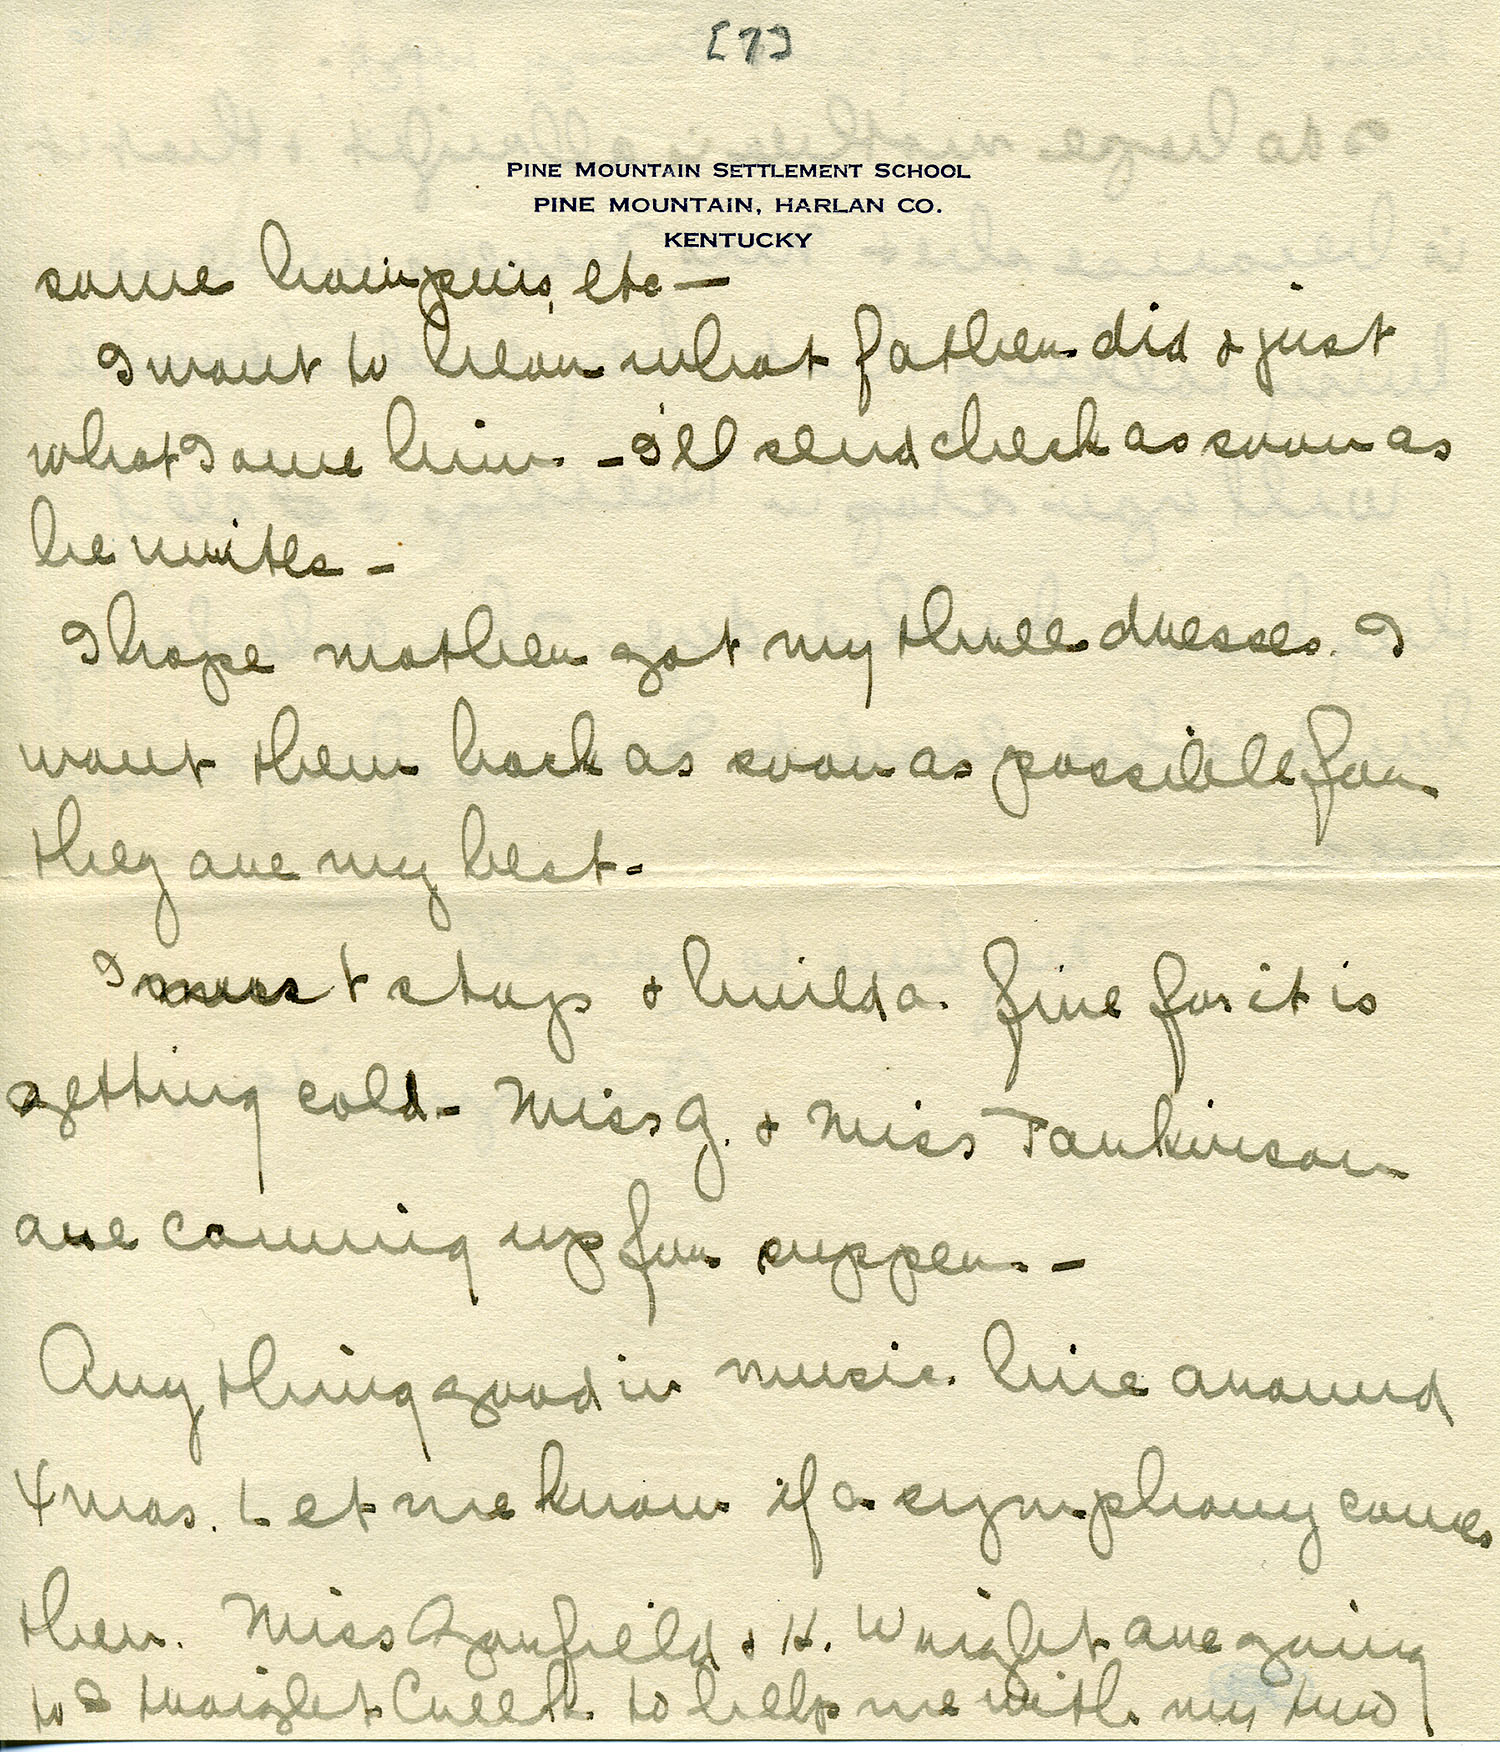 [7]
PINE MOUNTAIN SETTLEMENT SCHOOL
PINE MOUNTAIN, HARLAN CO.
KENTUCKY
some hairpins, etc —
I want to hear what father did & just
what I owe him - I'll send check as soon as
he writes -
I hope mother got my three dresses. I
want them back as soon as possible for
they are my best -
I must stop & build a fire for it is
getting cold - Miss G. & Miss Tankinson
are coming up for supper. -
Any thing good in music line around
Xmas. Let me know if a symphony comes
then. Miss Gaufield & H. Wright are going
to Straight Creek to help me with my two